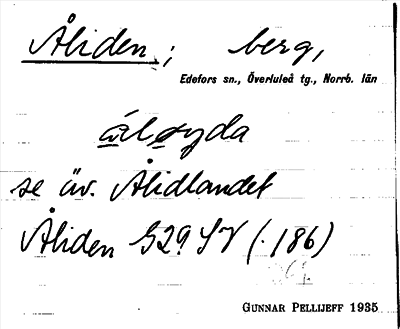 Åliden; berg,
Edefors sn., Överluleå tg., Norrb. län
se äv. Ålidlandet
Åliden G29 SV (. 186)
GUNNAR PELLIJEFF 1935